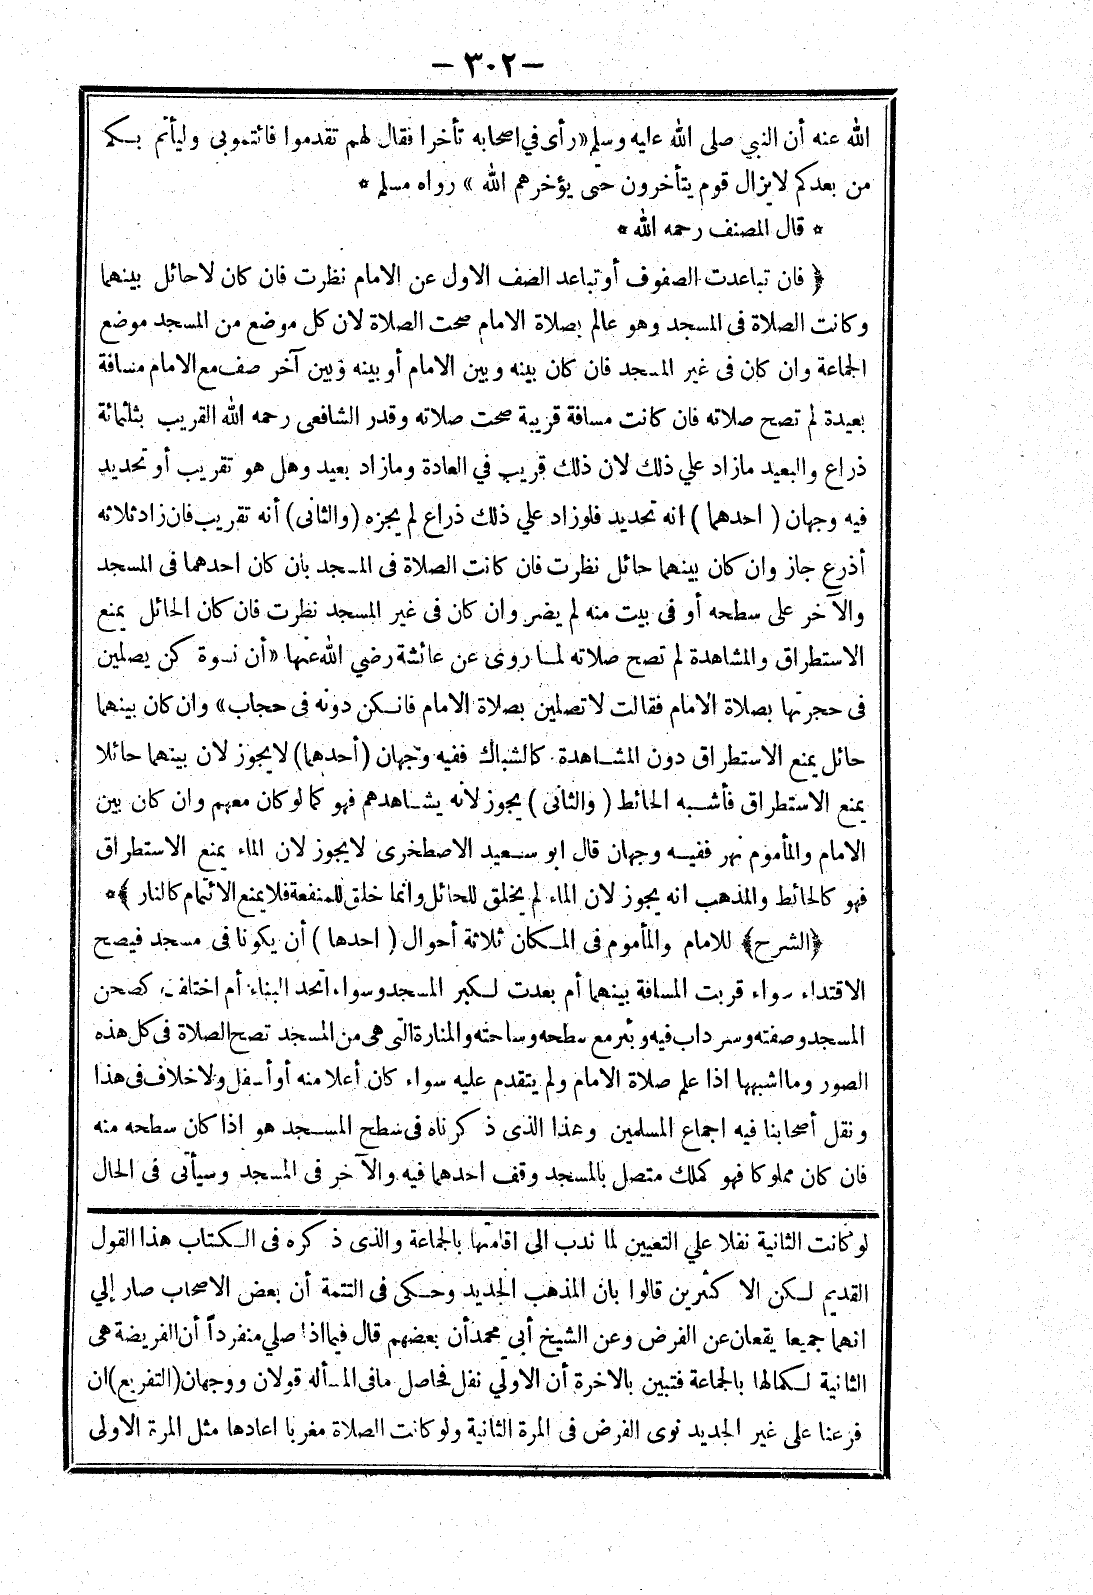 — ٣٠٢ —
الله عنه أن النبي صلى الله عليه وسلم «رأى في اصحابه تأخرا فقال لهم تقدموا فائتموا بي وليأتم بكم
من بعدكم لا يزال قوم يتأخرون حتى يؤخرهم الله » رواه مسلم *
* قال المصنف رحمه الله *
﴿ فان تباعدت الصفوف أو تباعد الصف الاول عن الامام نظرت فان كان لا حائل بينهما
وكانت الصلاة فى المسجد وهو عالم بصلاة الامام صحت الصلاة لان كل موضع من المسجد موضع
الجماعة وان كان فى غير المسجد فان كان بينه وبين الامام أو بينه وبين آخر صف مع الامام مسافة
بعيدة لم تصح صلاته فان كانت مسافة قريبة صحت صلاته وقدر الشافعى رحمه الله القريب بثلثمائة
ذراع والبعيد مازاد علي ذلك لان ذلك قريب في العادة ومازاد بعيد وهل هو تقريب أو تحديد
فيه وجهان ( احدهما ) انه تحديد فلو زاد علي ذلك ذراع لم يجزه (والثانى) أنه تقريب فان زاد ثلاثه
أذرع جاز وان كان بينهما حائل نظرت فان كانت الصلاة فى المسجد بان كان احدهما فى المسجد
والآخر على سطحه أو فى بيت منه لم يضر وان كان فى غير المسجد نظرت فان كان الحائل يمنع
الاستطراق والمشاهدة لم تصح صلاته لما روى عن عائشة رضي الله عنها «أن نسوة كن يصلين
فى حجرتها بصلاة الامام فقالت لا تصلين بصلاة الامام فانكن دونه فى حجاب» وان كان بينهما
حائل يمنع الاستطراق دون المشاهدة كالشباك ففيه وجهان (أحدهما) لا يجوز لان بينهما حائلا
يمنع الاستطراق فأشبه الحائط ( والثانى ) يجوز لأنه يشاهدهم فهو كما لو كان معهم وان كان بين
الامام والمأموم نهر ففيه وجهان قال ابو سعيد الاصطخرى لا يجوز لان الماء يمنع الاستطراق
فهو كالحائط والمذهب انه يجوز لان الماء لم يخلق للحائل وانما خلق للمنفعة فلا يمنع الائتمام كالنار ﴾ *
﴿الشرح﴾ للامام والمأموم فى المكان ثلاثة أحوال ( احدها ) أن يكونا فى مسجد فيصح
الاقتداء سواء قربت المسافة بينهما أم بعدت لكبر المسجد وسواء اتحد البناء أم اختلف كصحن
المسجد وصفته وسرداب فيه وبئر مع سطحه وساحته والمنارة التى هى من المسجد تصح الصلاة فى كل هذه
الصور وما اشبهها اذا علم صلاة الامام ولم يتقدم عليه سواء كان أعلا منه أو أسفل ولا خلاف فى هذا
ونقل أصحابنا فيه اجماع المسلمين وهذا الذى ذكرناه فى سطح المسجد هو اذا كان سطحه منه
فان كان مملوكا فهو كملك متصل بالمسجد وقف احدهما فيه والآخر فى المسجد وسيأتى فى الحال
لو كانت الثانية نفلا علي التعيين لما ندب الى اقامتها بالجماعة والذى ذكره فى الكتاب هذا القول
القديم لكن الاكثرين قالوا بان المذهب الجديد وحكى فى التتمة أن بعض الاصحاب صار إلي
انهما جميعا يقعان عن الفرض وعن الشيخ أبي محمد أن بعضهم قال فيما اذا صلي منفرداً أن الفريضة هى
الثانية لكمالها بالجماعة فتبين بالاخرة أن الاولي نفل فحاصل مافى المسأله قولان ووجهان (التفريع) ان
فرعنا على غير الجديد نوى الفرض فى المرة الثانية ولو كانت الصلاة مغربا اعادها مثل المرة الاولى